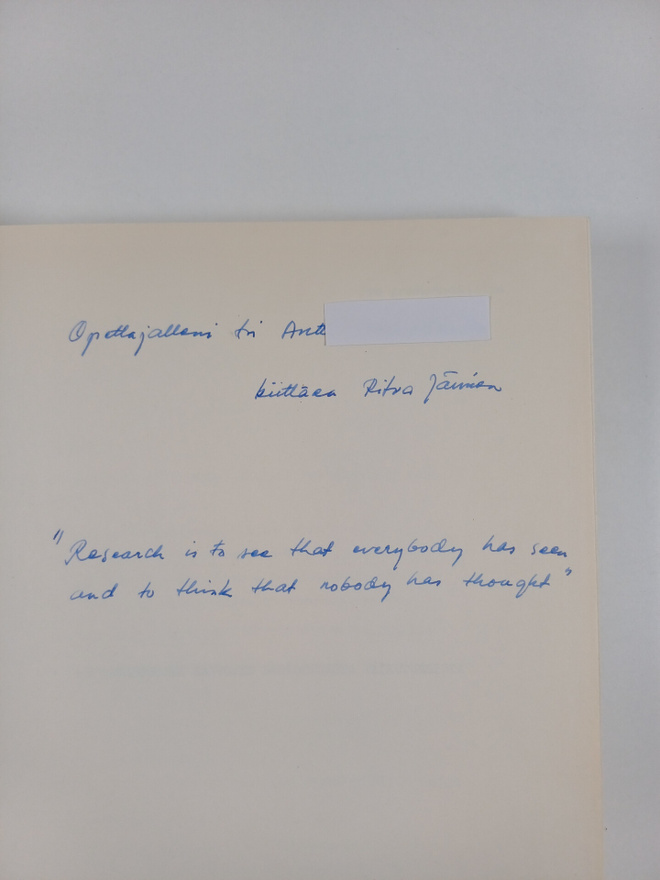 Opettajalleni tri Antt
kiittäen Ritva Järvinen
"Research is to see that everybody has seen
and to think that nobody has thought"